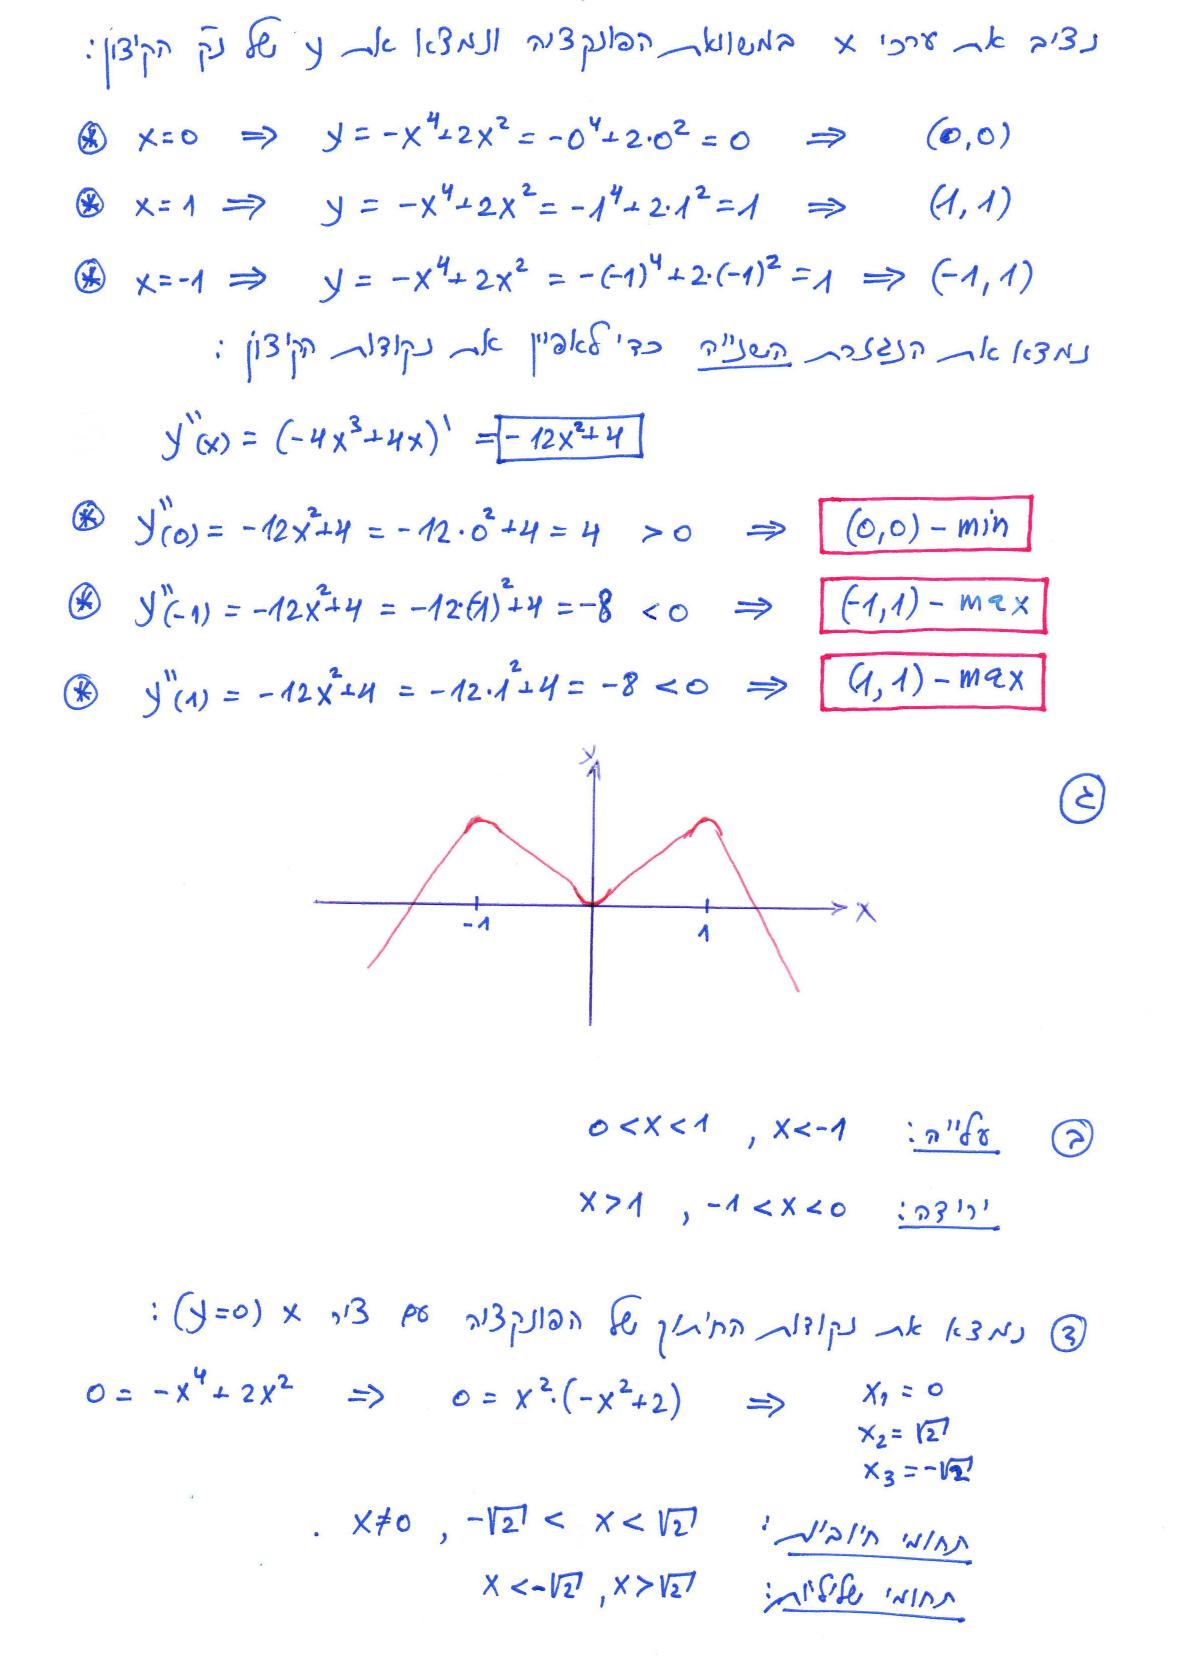 נציב את ערכי x במשוואת הפונקציה ונמצא את y של נק' הקיצון:
⊛ x=0 ⇒ y = -x⁴+2x² = -0⁴+2·0² = 0 ⇒ (0,0)
⊛ x=1 ⇒ y = -x⁴+2x² = -1⁴+2·1² = 1 ⇒ (1,1)
⊛ x=-1 ⇒ y = -x⁴+2x² = -(-1)⁴+2·(-1)² = 1 ⇒ (-1,1)
נמצא את הנגזרת השנייה כדי לאפיין את נקודות הקיצון:
y''(x) = (-4x³+4x)' = -12x²+4
⊛ y''(0) = -12x²+4 = -12·0²+4 = 4 >0 ⇒ (0,0) - min
⊛ y''(-1) = -12x²+4 = -12·(-1)²+4 = -8 <0 ⇒ (-1,1) - max
⊛ y''(1) = -12x²+4 = -12·1²+4 = -8 <0 ⇒ (1,1) - max
ג
y
x
-1
1
ב עלייה: x<-1 , 0<x<1
ירידה: -1<x<0 , x>1
ד נמצא את נקודות החיתוך של הפונקציה עם ציר x (y=0):
0 = -x⁴+2x² ⇒ 0 = x²·(-x²+2) ⇒ x₁ = 0
x₂ = √2
x₃ = -√2
תחומי חיוביות: -√2 < x < √2 , x≠0 .
תחומי שליליות: x<-√2 , x>√2